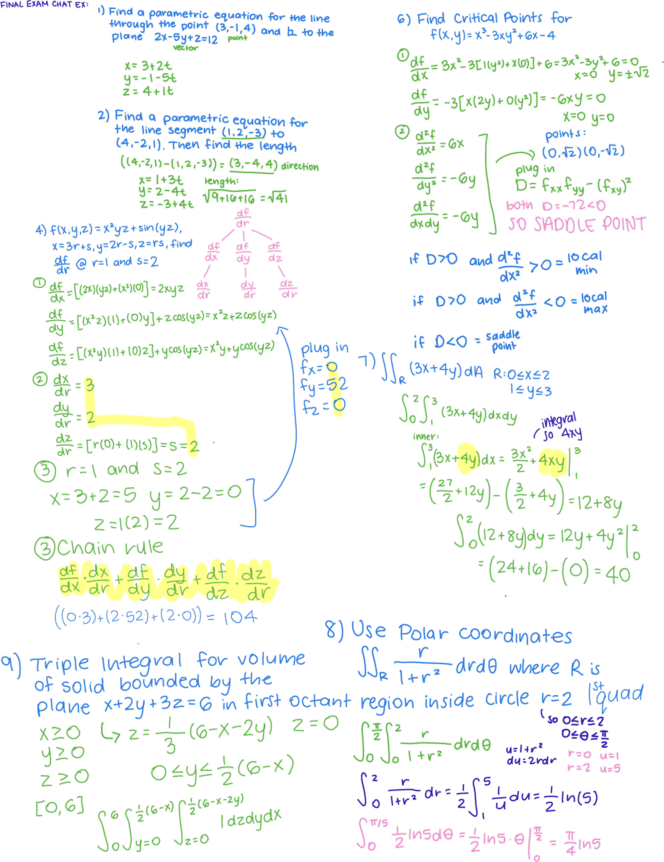 FINAL EXAM CHAT EX:
1) Find a parametric equation for the line
through the point (3,-1,4) and ⊥ to the
point
plane 2x-5y+z=12
vector
x=3+2t
y=-1-5t
z=4+1t
2) Find a parametric equation for
the line segment (1,2,-3) to
(4,-2,1). Then find the length
((4,-2,1)-(1,2,-3))=(3,-4,4) direction
x=1+3t
y=2-4t
z=-3+4t
length:
√9+16+16=√41
4) f(x,y,z)=x²yz+sin(yz),
x=3r+s,y=2r-s,z=rs, find
df/dr @ r=1 and s=2
df/dr
df/dx df/dy df/dz
dx/dr dy/dr dz/dr
① df/dx=[(2x)(yz)+(x²)(0)]=2xyz
df/dy=[(x²z)(1)+(0)y]+zcos(yz)=x²z+zcos(yz)
df/dz=[(x²y)(1)+(0)z]+ycos(yz)=x²y+ycos(yz)
② dx/dr=3
dy/dr=2
dz/dr=[r(0)+(1)(s)]=s=2
③ r=1 and s=2
x=3+2=5 y=2-2=0
z=1(2)=2
plug in
fx=0
fy=52
fz=0
③ Chain rule
df/dx·dx/dr+df/dy·dy/dr+df/dz·dz/dr
((0·3)+(2·52)+(2·0))=104
6) Find Critical Points for
f(x,y)=x³-3xy²+6x-4
① df/dx=3x²-3[1(y²)+x(0)]+6=3x²-3y²+6=0
x=0 y=±√2
df/dy=-3[x(2y)+0(y²)]=-6xy=0
x=0 y=0
② d²f/dx²=6x
d²f/dy²=-6y
d²f/dxdy=-6y
points:
(0,√2)(0,-√2)
plug in
D=fxxfyy-(fxy)²
both D=-72<0
SO SADDLE POINT
if D>0 and d²f/dx²>0=local min
if D>0 and d²f/dx²<0=local max
if D<0=saddle point
7) ∬R (3x+4y)dA R:0≤x≤2
1≤y≤3
∫₀²∫₁³(3x+4y)dxdy
integral
so 4xy
inner:
∫₁³(3x+4y)dx=3x²/2+4xy|₁³
=(27/2+12y)-(3/2+4y)=12+8y
∫₀²(12+8y)dy=12y+4y²|₀²
=(24+16)-(0)=40
8) Use Polar coordinates
∬R r/1+r² drdθ where R is
region inside circle r=2 1st quad
so 0≤r≤2
0≤θ≤π/2
∫₀^π/2∫₀² r/1+r² drdθ
u=1+r²
du=2rdr
r=0 u=1
r=2 u=5
∫₀² r/1+r² dr=1/2∫₁⁵1/u du=1/2ln(5)
∫₀^π/5 1/2ln5dθ=1/2ln5·θ|₀^π/2=π/4ln5
9) Triple Integral for volume
of solid bounded by the
plane x+2y+3z=6 in first octant
x≥0 ↳ z=1/3(6-x-2y) z=0
y≥0
z≥0 0≤y≤1/2(6-x)
[0,6]
∫₀⁶∫y=0^1/2(6-x)∫z=0^1/2(6-x-2y) 1dzdydx